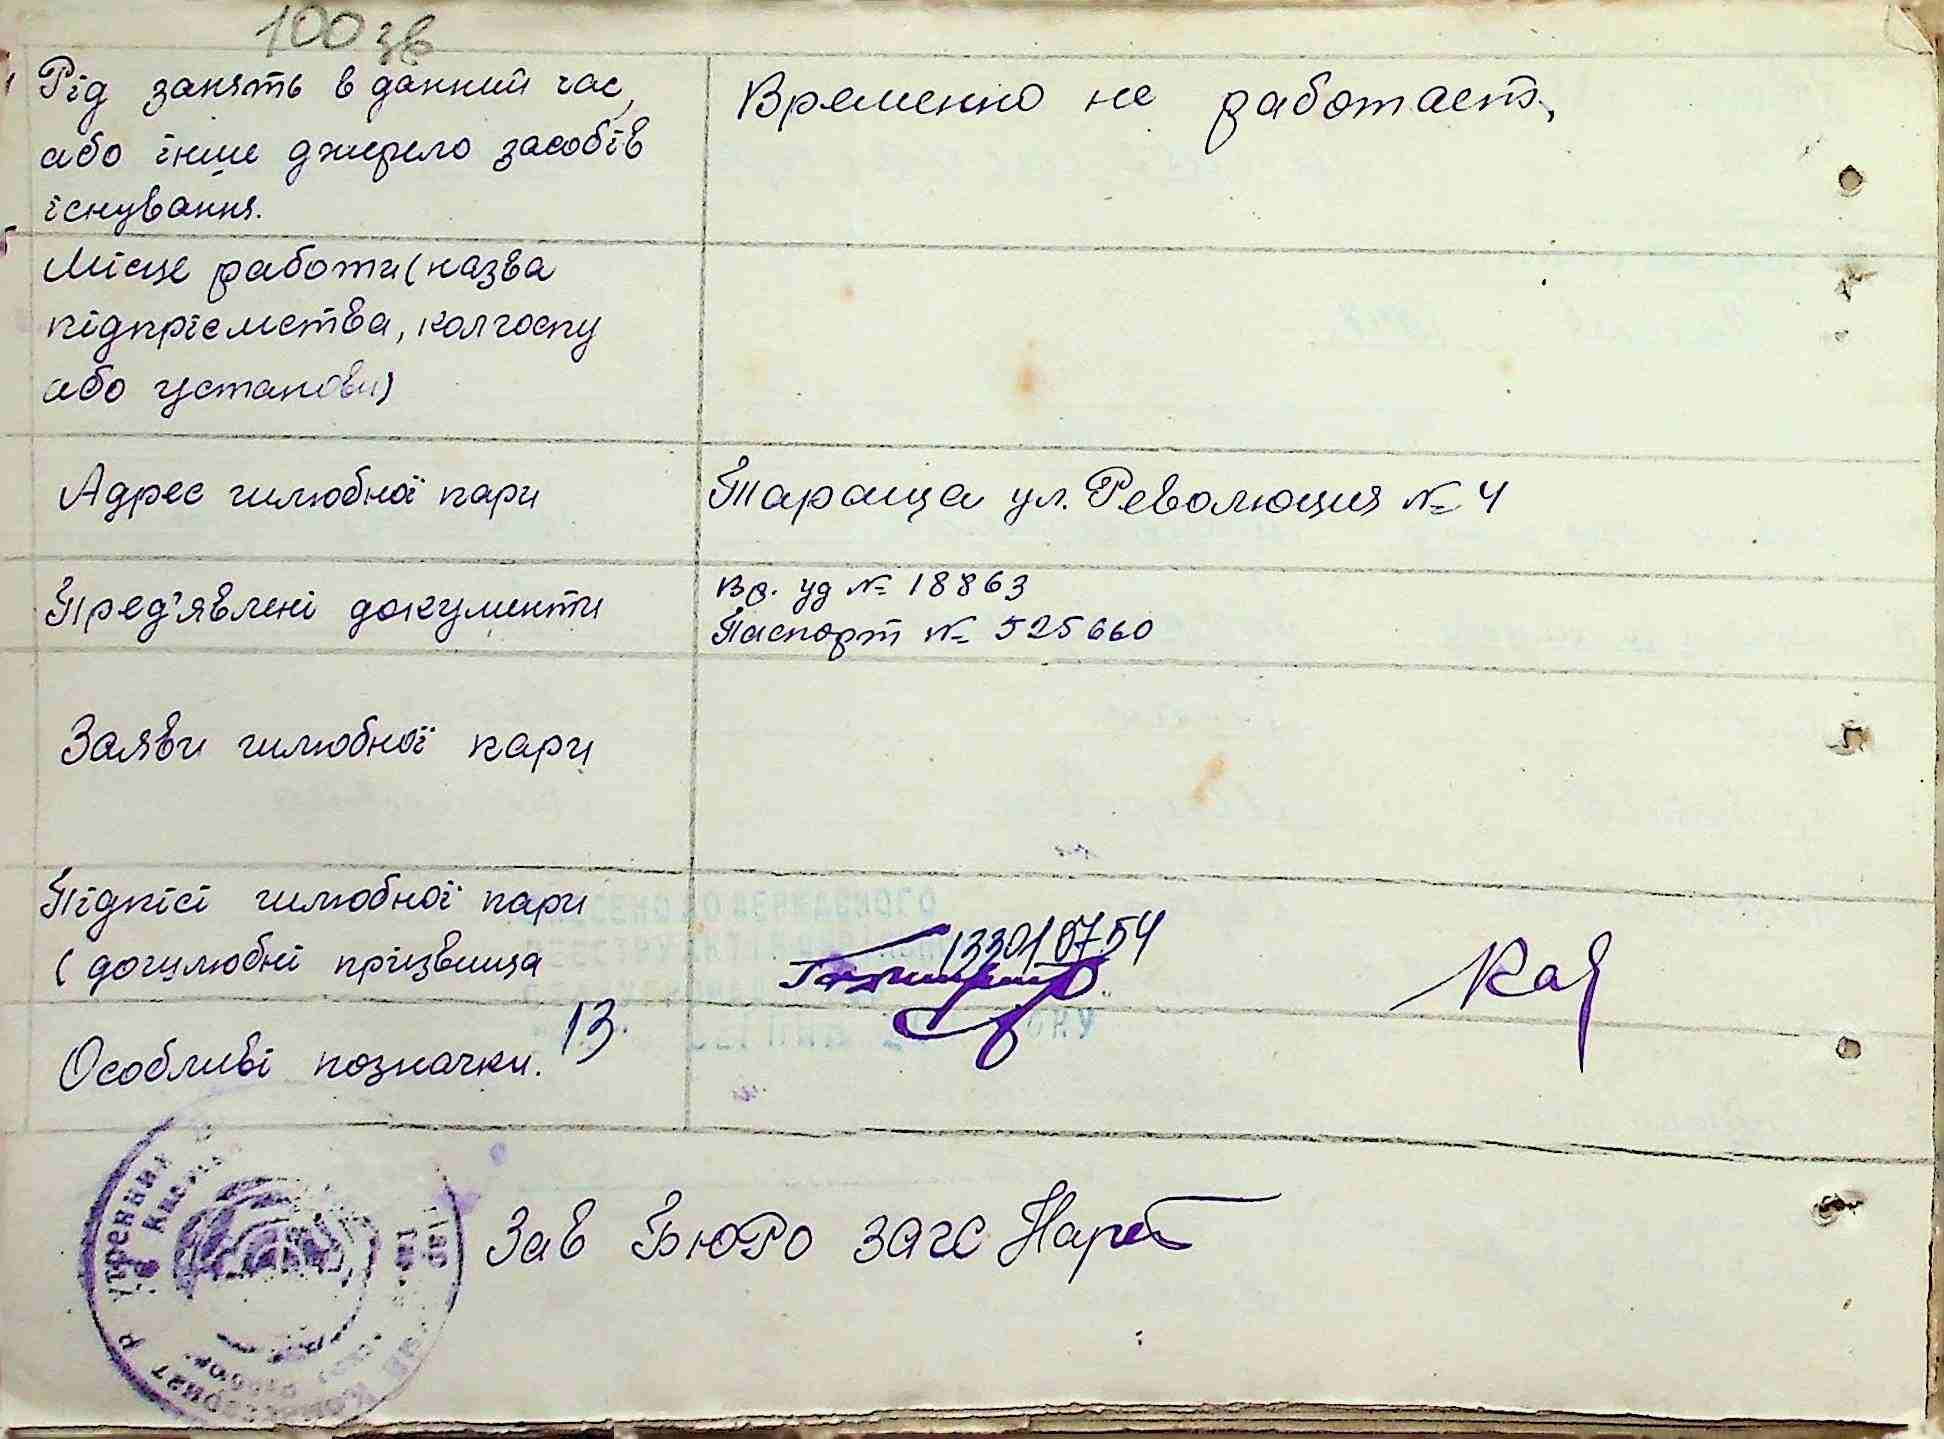 100 зв
Рід занять в данний час,
або інше джерело засобів
існування.
Временно не работает,
Місце работи (назва
підприємства, колгоспу
або установи)
Адрес шлюбної пари
Тараща ул. Революция № 4
Пред'явлені документи
Вр. уд № 18863
Паспорт № 525660
Заяви шлюбної пари
Підпісі шлюбної пари
(дошлюбні прізвища
13301 0754
Особливі позначки.
13.
Зав Бюро ЗАГС